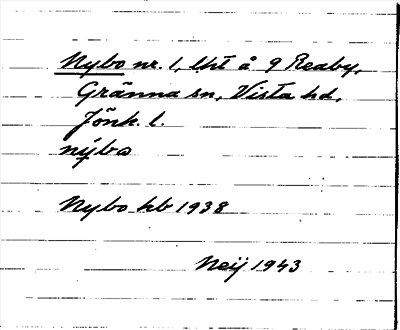 Nybo nr. 1, lht å 9 Reaby,
Gränna sn, Vista hd,
Jönk. l.
nybo
Nybo kb 1938
Neij 1943